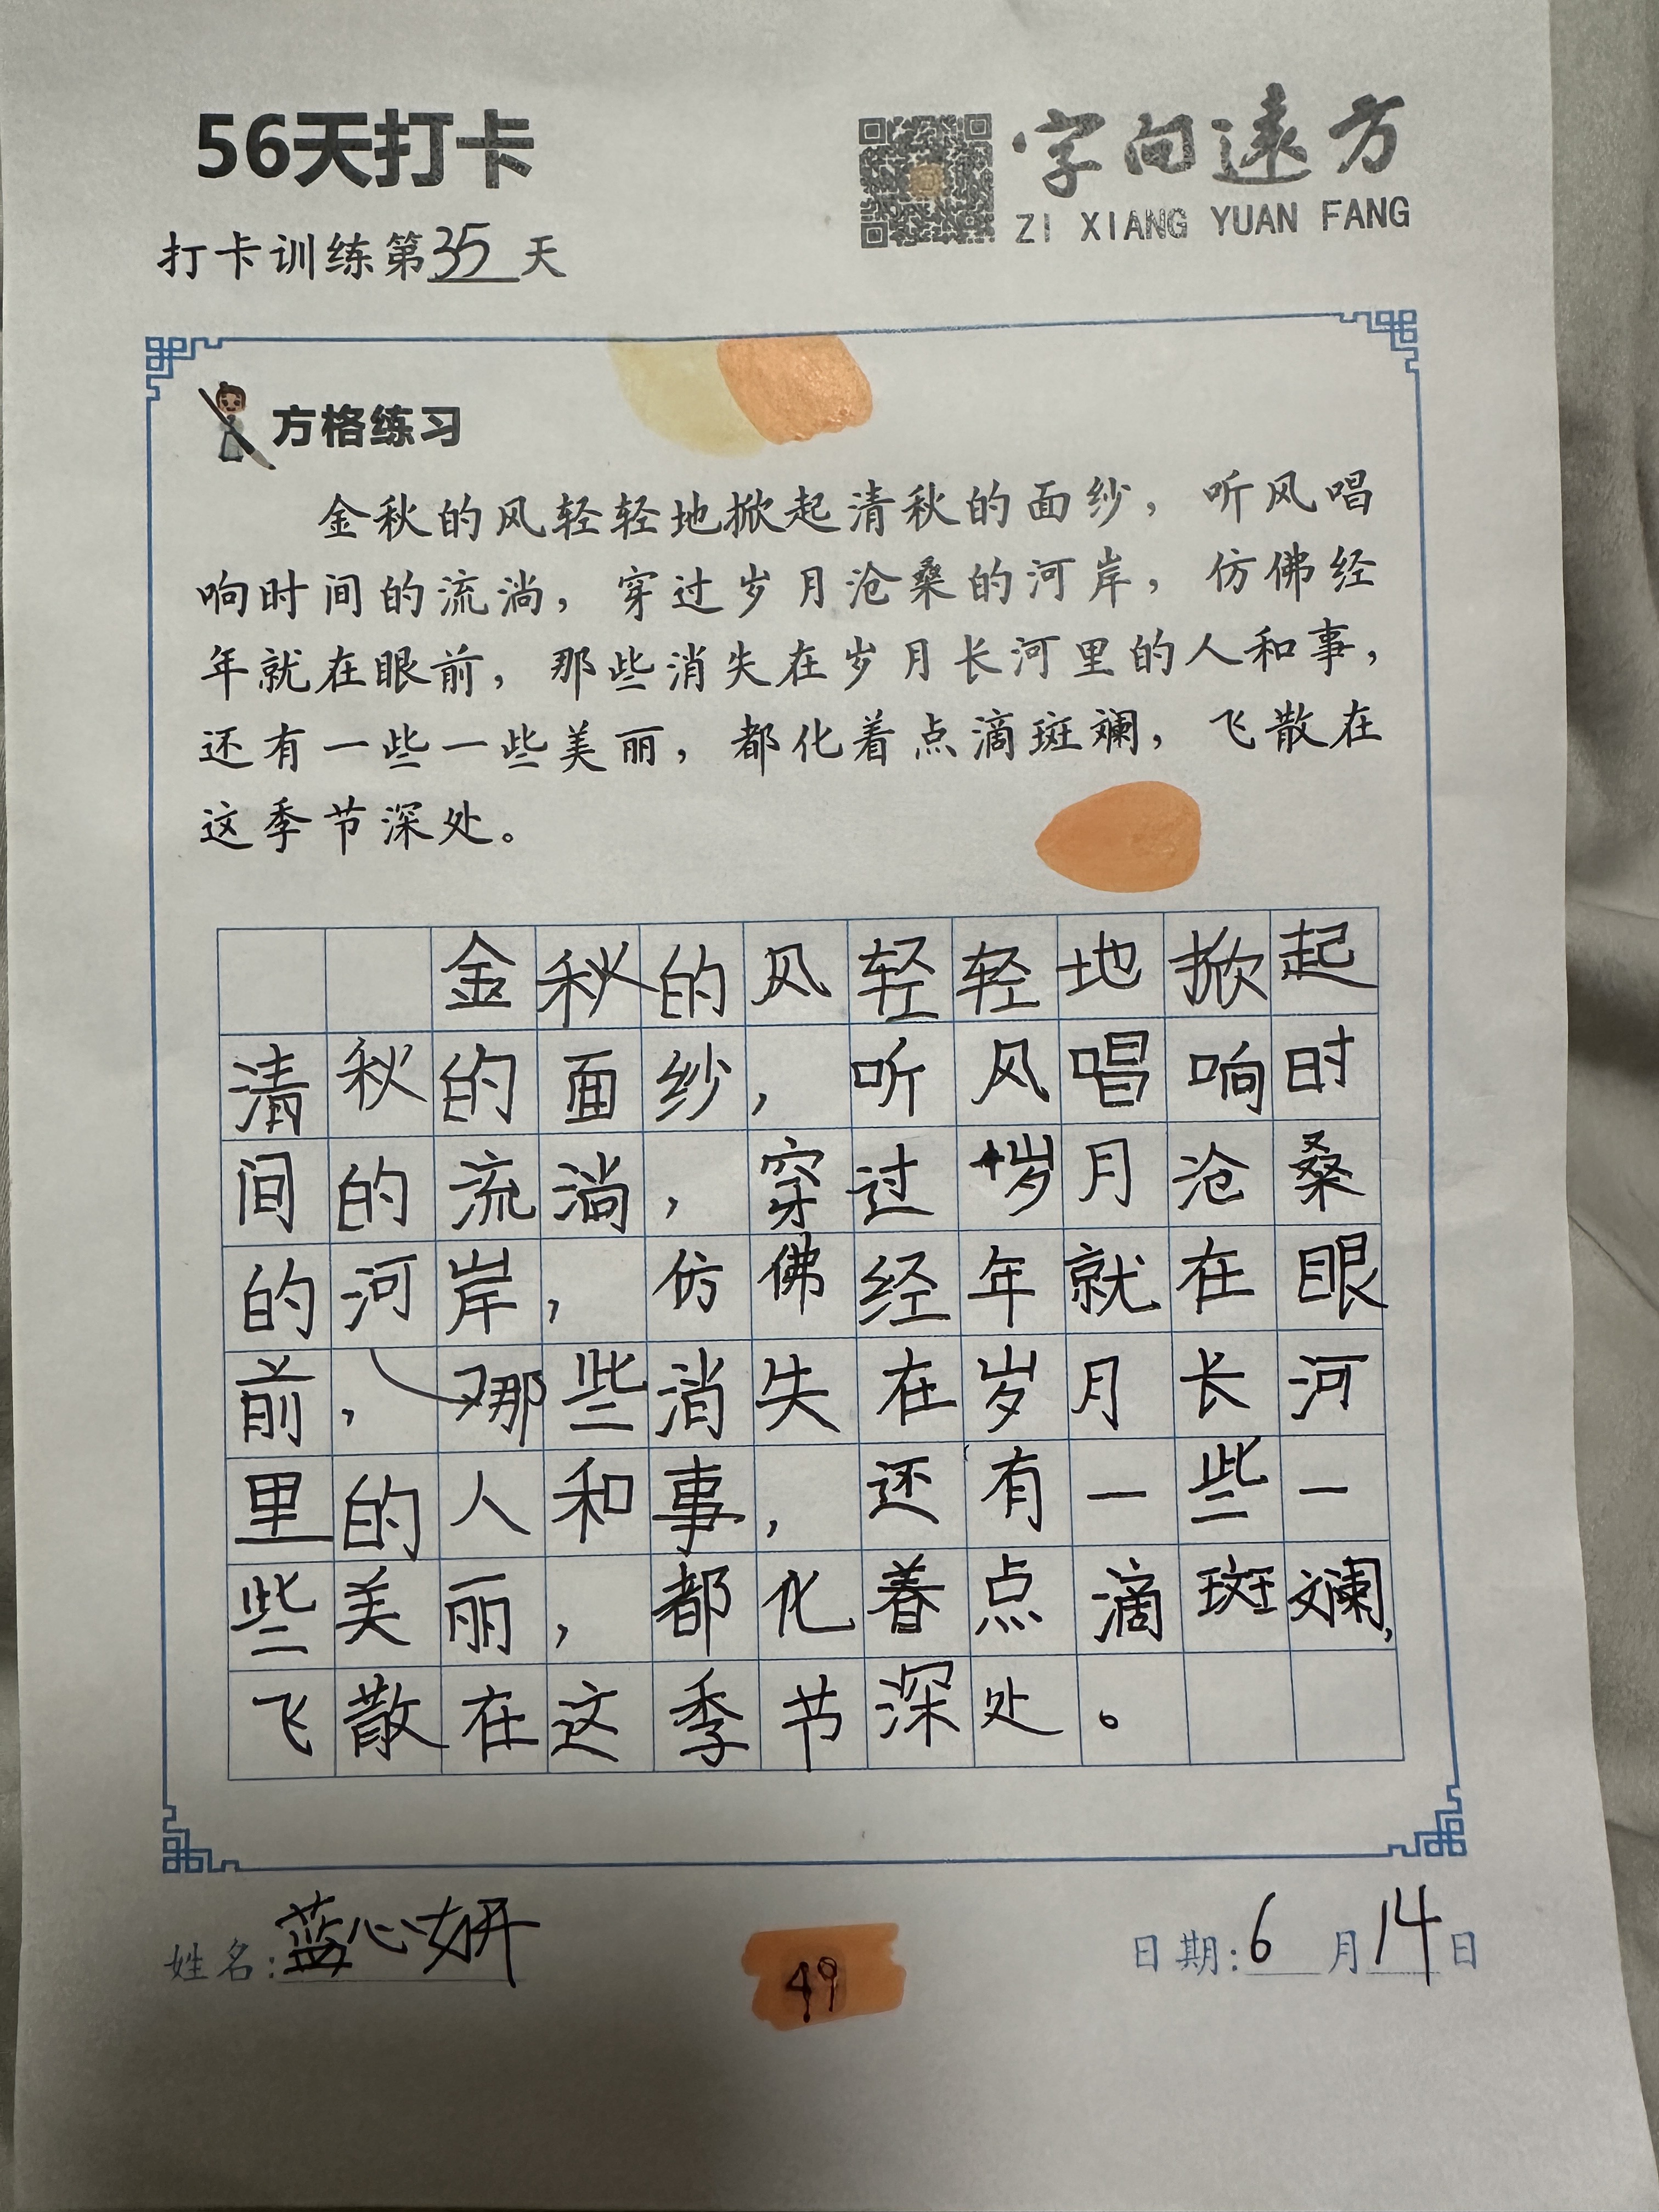 56天打卡
字向遠方
ZI XIANG YUAN FANG
打卡训练第35天
方格练习
金秋的风轻轻地掀起清秋的面纱，听风唱
响时间的流淌，穿过岁月沧桑的河岸，仿佛经
年就在眼前，那些消失在岁月长河里的人和事，
还有一些一些美丽，都化着点滴斑斓，飞散在
这季节深处。
金秋的风轻轻地掀起
清秋的面纱，听风唱响时
间的流淌，穿过岁月沧桑
的河岸，仿佛经年就在眼
前，那些消失在岁月长河
里的人和事，还有一些一
些美丽，都化着点滴斑斓，
飞散在这季节深处。
姓名：蓝心妍
49
日期：6月14日